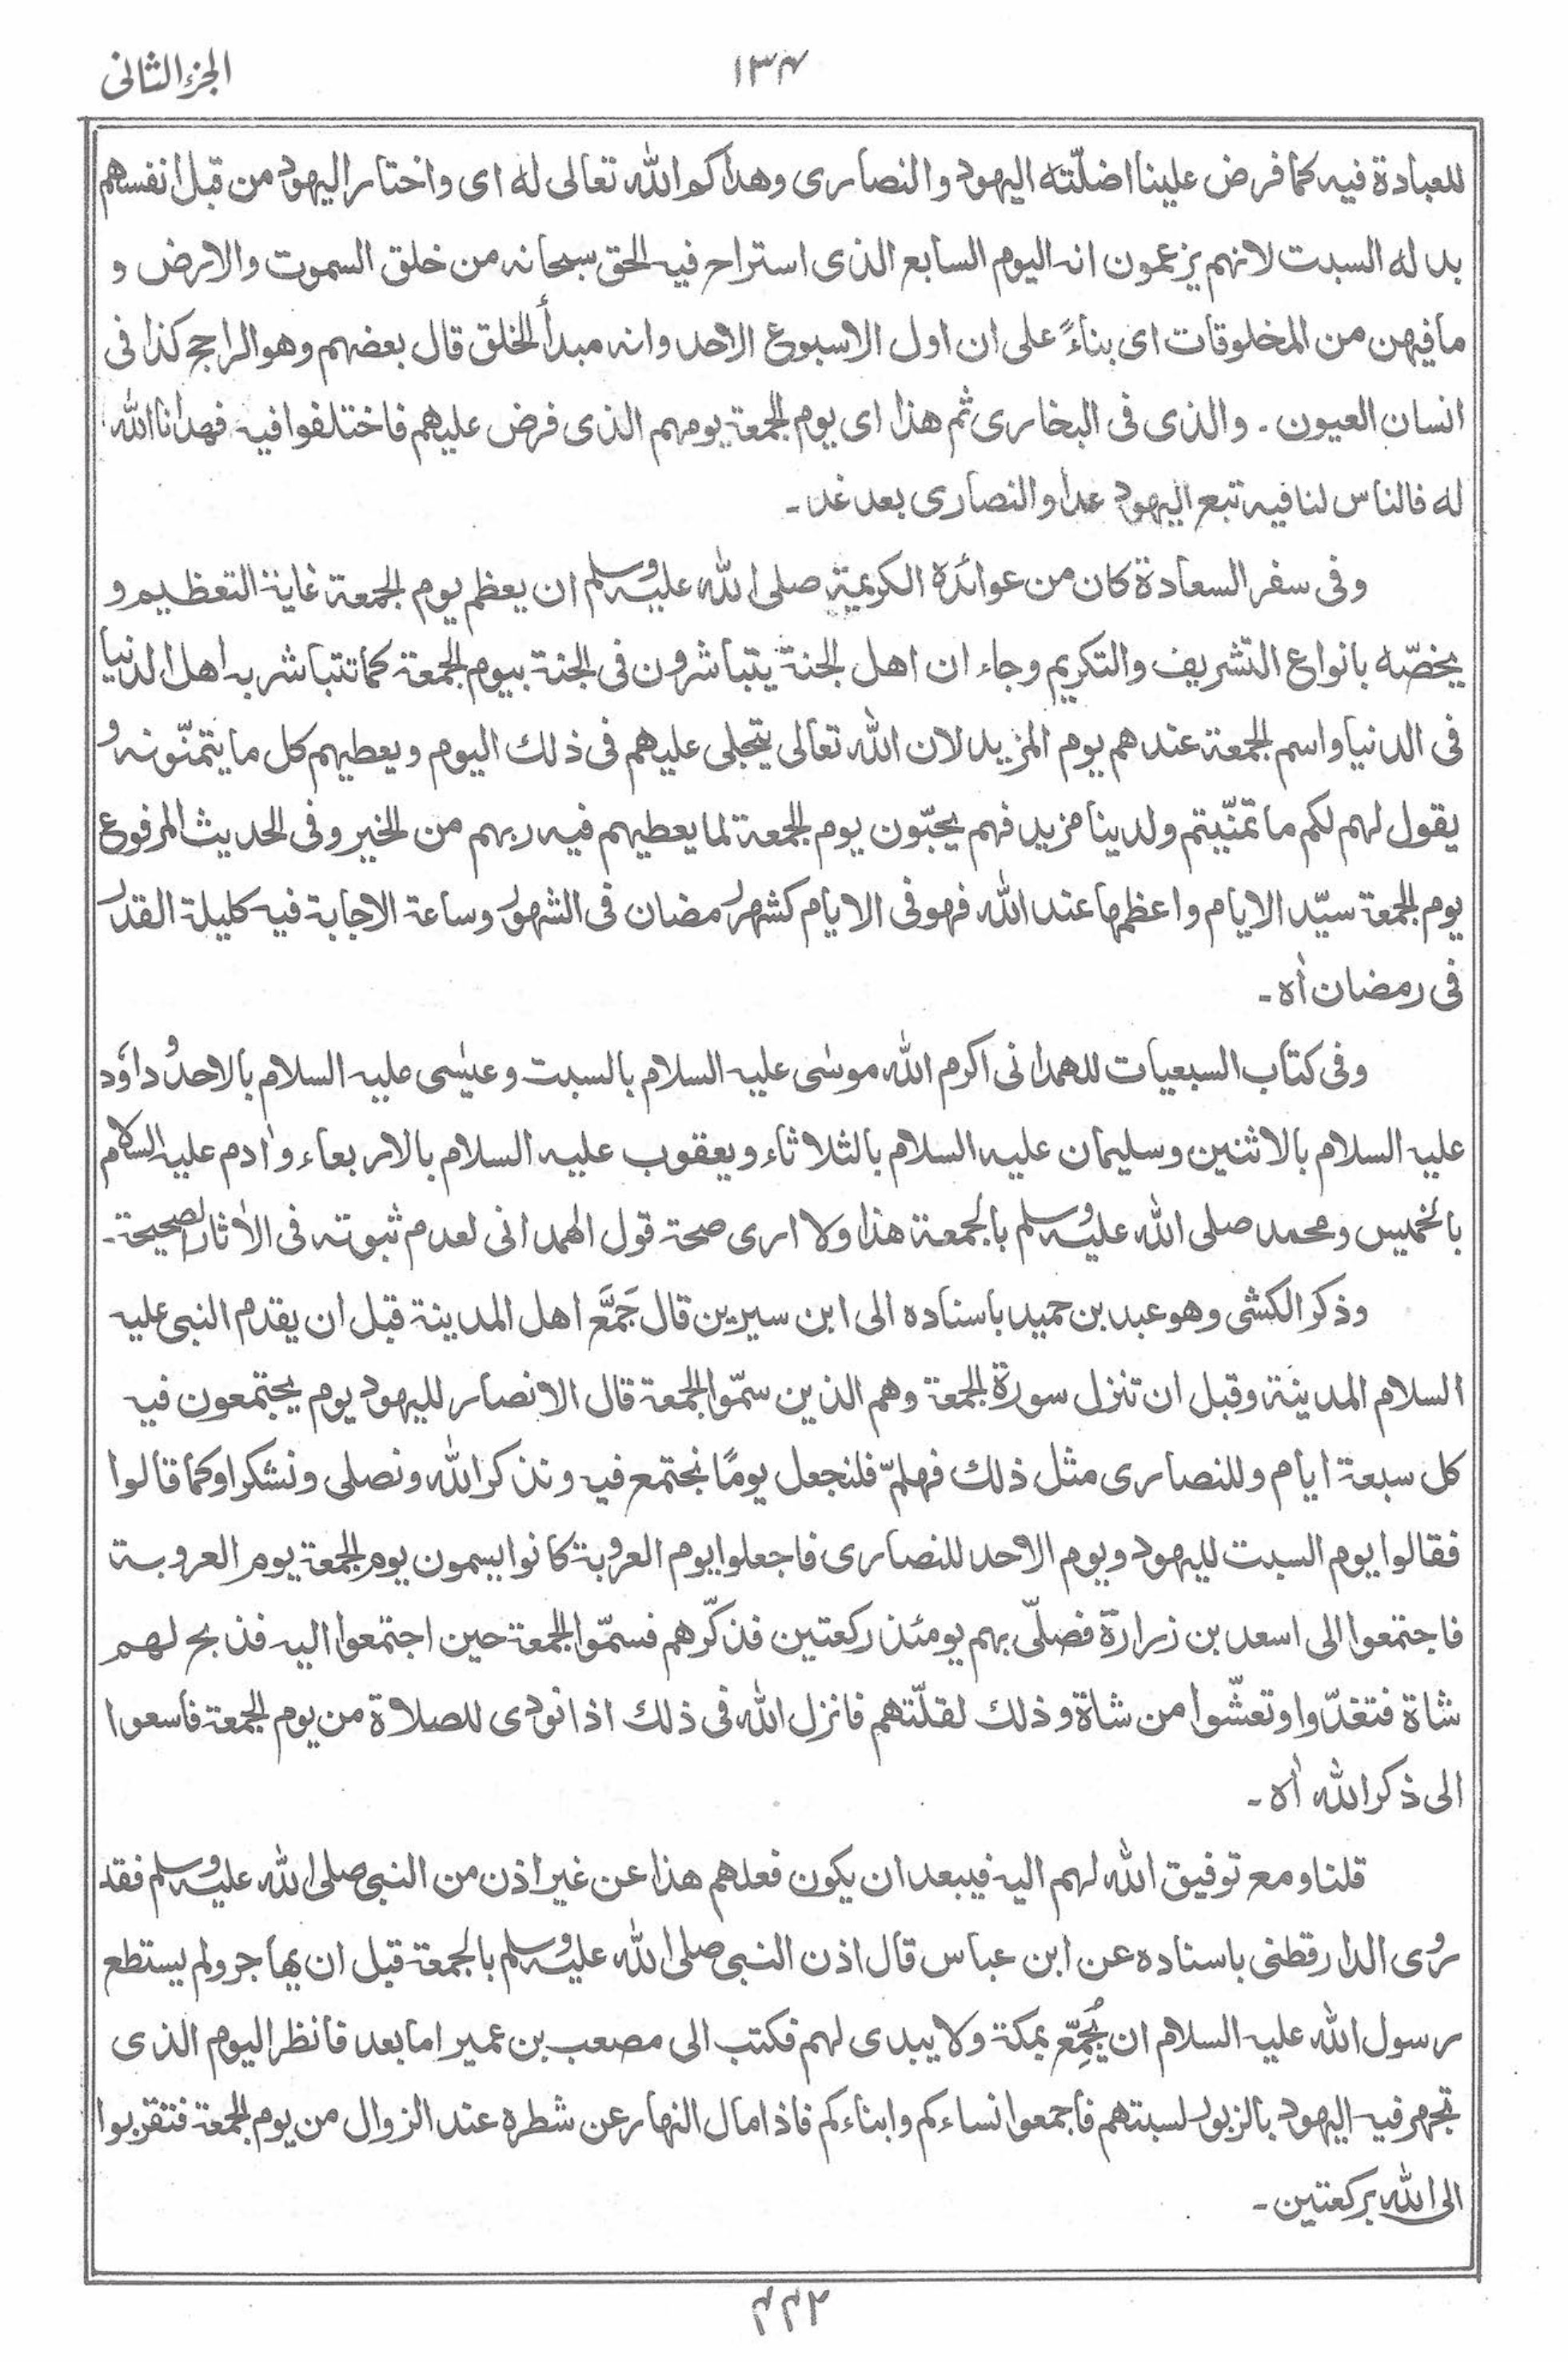 الجزء الثانى
۱۳۴
للعبادة فيه كما فرض علينا اضلّته اليهود والنصارى وهداكم الله تعالى له اى واختار اليهود من قبل انفسهم
بدله السبت لانهم يزعمون انه اليوم السابع الذى استراح فيه الحق سبحانه من خلق السموت والارض و
مافيهن من المخلوقات اى بناءً على ان اول الاسبوع الاحد وانه مبدأ الخلق قال بعضهم وهو الراجح كذا فى
انسان العيون ۔ والذى فى البخارى ثم هذا اى يوم الجمعة يومهم الذى فرض عليهم فاختلفوا فيه فهدانا الله
له فالناس لنا فيه تبع اليهود غدا والنصارى بعد غد ۔
وفى سفر السعادة كان من عوائده الكريمة صلى الله عليه وسلم ان يعظم يوم الجمعة غاية التعظيم و
يخصّه بانواع التشريف والتكريم وجاء ان اهل الجنة يتباشرون فى الجنة بيوم الجمعة كما تتباشر به اهل الدنيا
فى الدنيا واسم الجمعة عندهم يوم المزيد لان الله تعالى يتجلى عليهم فى ذلك اليوم ويعطيهم كل ما يتمنّونه و
يقول لهم لكم ما تمنّيتم ولدينا مزيد فهم يحبّون يوم الجمعة لما يعطيهم فيه ربهم من الخير وفى الحديث المرفوع
يوم الجمعة سيّد الايام واعظمها عند الله فهو فى الايام كشهر رمضان فى الشهور وساعة الاجابة فيه كليلة القدر
فى رمضان اٰه ۔
وفى كتاب السبعيات للهمدانى اكرم الله موسٰى عليه السلام بالسبت وعيسٰى عليه السلام بالاحد وداوٗد
عليه السلام بالاثنين وسليمان عليه السلام بالثلاثاء ويعقوب عليه السلام بالاربعاء واٰدم عليه السلام
بالخميس ومحمد صلى الله عليه وسلم بالجمعة هذا ولا ارى صحة قول الهمدانى لعدم ثبوته فى الاٰثار الصحيحة ۔
وذكر الكشى وهو عبد بن حميد باسناده الى ابن سيرين قال جَمَّع اهل المدينة قبل ان يقدم النبى عليه
السلام المدينة وقبل ان تنزل سورة الجمعة وهم الذين سمّوا الجمعة قال الانصار لليهود يوم يجتمعون فيه
كل سبعة ايام وللنصارى مثل ذلك فهلمّ فلنجعل يومًا نجتمع فيه ونذكر الله ونصلى ونشكر اوكما قالوا
فقالوا يوم السبت لليهود ويوم الاحد للنصارى فاجعلوا يوم العروبة كانوا يسمون يوم الجمعة يوم العروبة
فاجتمعوا الى اسعد بن زرارة فصلّى بهم يومئذ ركعتين فذكّرهم فسمّوا الجمعة حين اجتمعوا اليه فذبح لهم
شاة فتغدّوا وتعشّوا من شاة وذلك لقلّتهم فانزل الله فى ذلك اذا نودى للصلاة من يوم الجمعة فاسعوا
الى ذكر الله اٰه ۔
قلنا ومع توفيق الله لهم اليه فيبعد ان يكون فعلهم هذا عن غير اذن من النبى صلى الله عليه وسلم فقد
روى الدارقطنى باسناده عن ابن عباس قال اذن النبى صلى الله عليه وسلم بالجمعة قبل ان يهاجر ولم يستطع
رسول الله عليه السلام ان يُجمِّع بمكة ولا يبدى لهم فكتب الى مصعب بن عمير اما بعد فانظر اليوم الذى
تجهر فيه اليهود بالزبور لسبتهم فاجمعوا نساءكم وابناءكم فاذا مال النهار عن شطره عند الزوال من يوم الجمعة فتقربوا
الى الله بركعتين ۔
۴۴۲